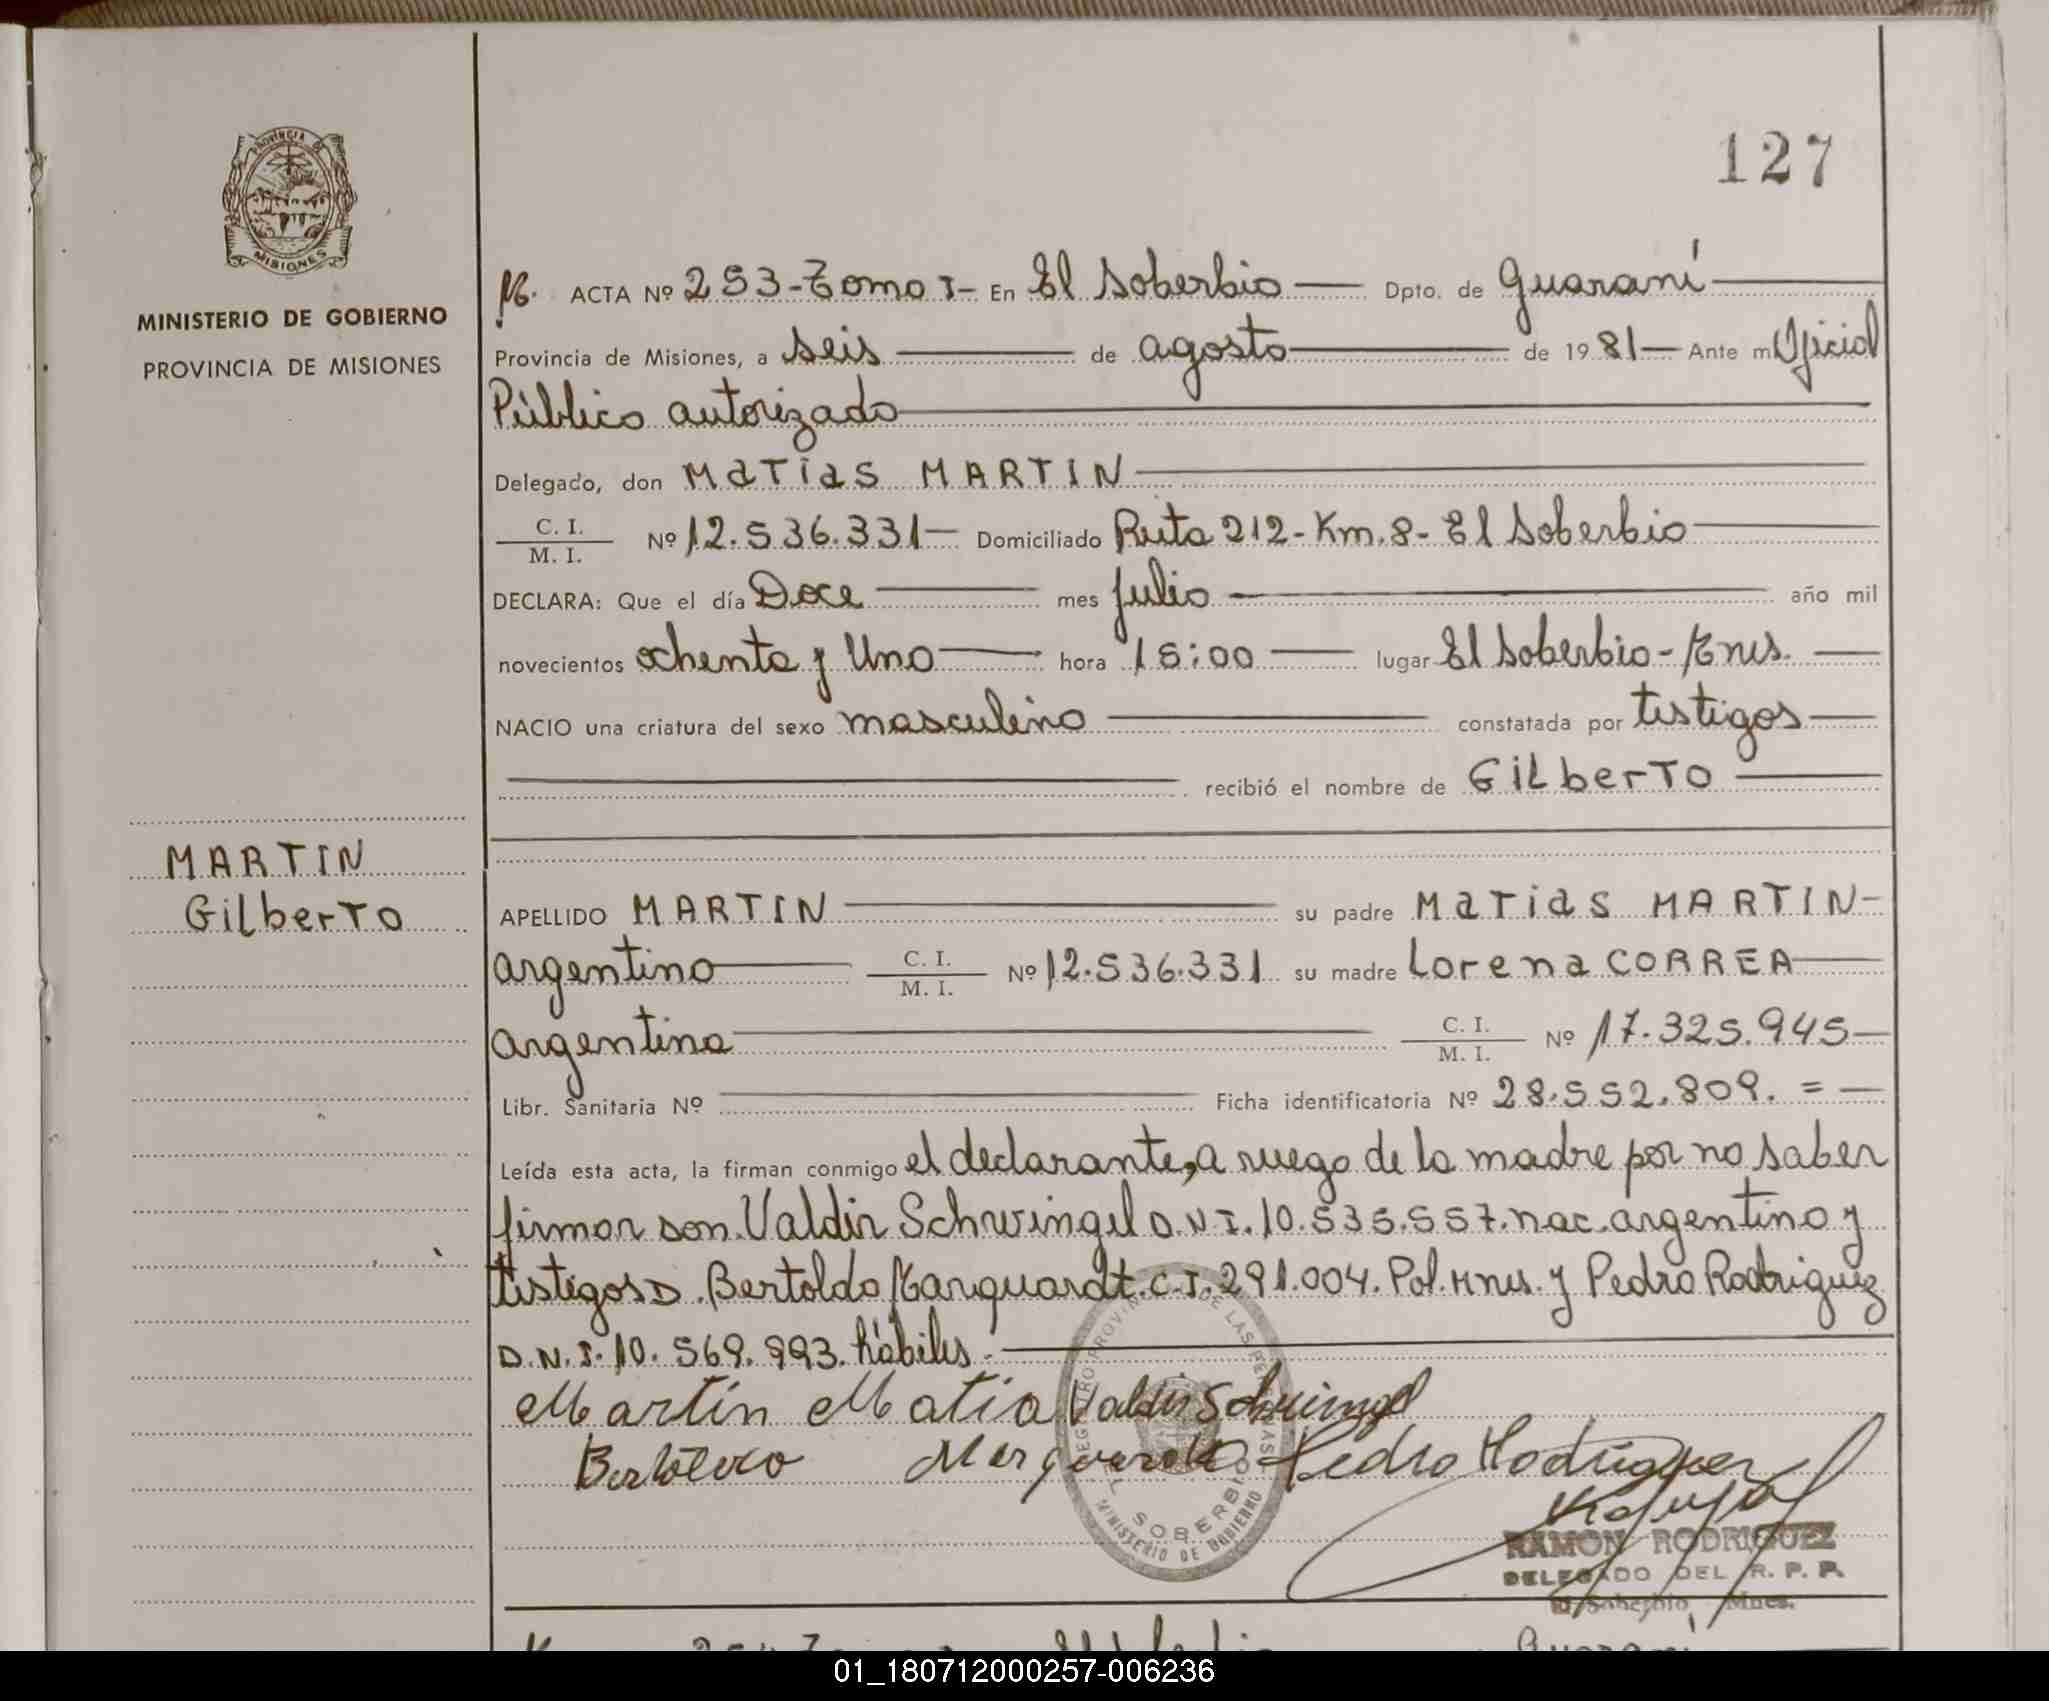 127
PROVINCIA DE
MISIONES
MINISTERIO DE GOBIERNO
PROVINCIA DE MISIONES
ACTA Nº 253-Tomo I- En El Soberbio Dpto. de Guaraní
Provincia de Misiones, a seis de agosto de 1981 Ante mi Oficial
Público autorizado
Delegado, don Matías MARTIN
C. I.
M. I.
Nº 12.536.331 Domiciliado Ruta 212-Km.8-El Soberbio
DECLARA: Que el día Doce mes julio año mil
novecientos ochenta y Uno hora 15:00 lugar El Soberbio-Mnes.
NACIO una criatura del sexo masculino constatada por testigos
recibió el nombre de Gilberto
MARTIN
Gilberto
APELLIDO MARTIN su padre Matias MARTIN-
argentino C. I.
M. I.
Nº 12.536.331 su madre Lorena CORREA
argentina C. I.
M. I.
Nº 17.325.945
Libr. Sanitaria Nº Ficha identificatoria Nº 28.552.809. =
Leída esta acta, la firman conmigo el declarante, a ruego de la madre por no saber
firmar don Valdir Schwingel D.N.I. 10.535.557. nac. argentino y
testigos D. Bertoldo Marquardt. C.I. 291.004. Pol. Mnes. y Pedro Rodriguez
D.N.I. 10.569.993. hábiles.
Martin Matia Valdir Schwingel
Marquardt Pedro Rodriguez
REGISTRO PROVINCIAL DE LAS PERSONAS
EL SOBERBIO
MINISTERIO DE GOBIERNO
RAMON RODRIGUEZ
DELEGADO DEL R. P. P.
El Soberbio, Mnes.
01_180712000257-006236